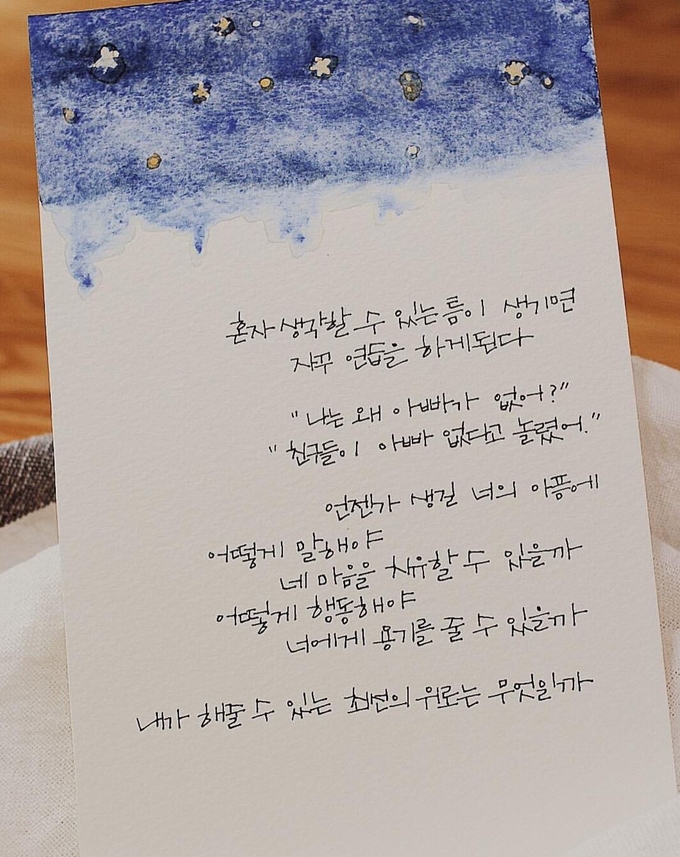 혼자 생각할 수 있는 틈이 생기면
자꾸 연습을 하게된다
"나는 왜 아빠가 없어?"
"친구들이 아빠 없다고 놀렸어."
언젠가 생길 너의 아픔에
어떻게 말해야
네 마음을 치유할 수 있을까
어떻게 행동해야
너에게 용기를 줄 수 있을까
내가 해줄 수 있는 최선의 위로는 무엇일까